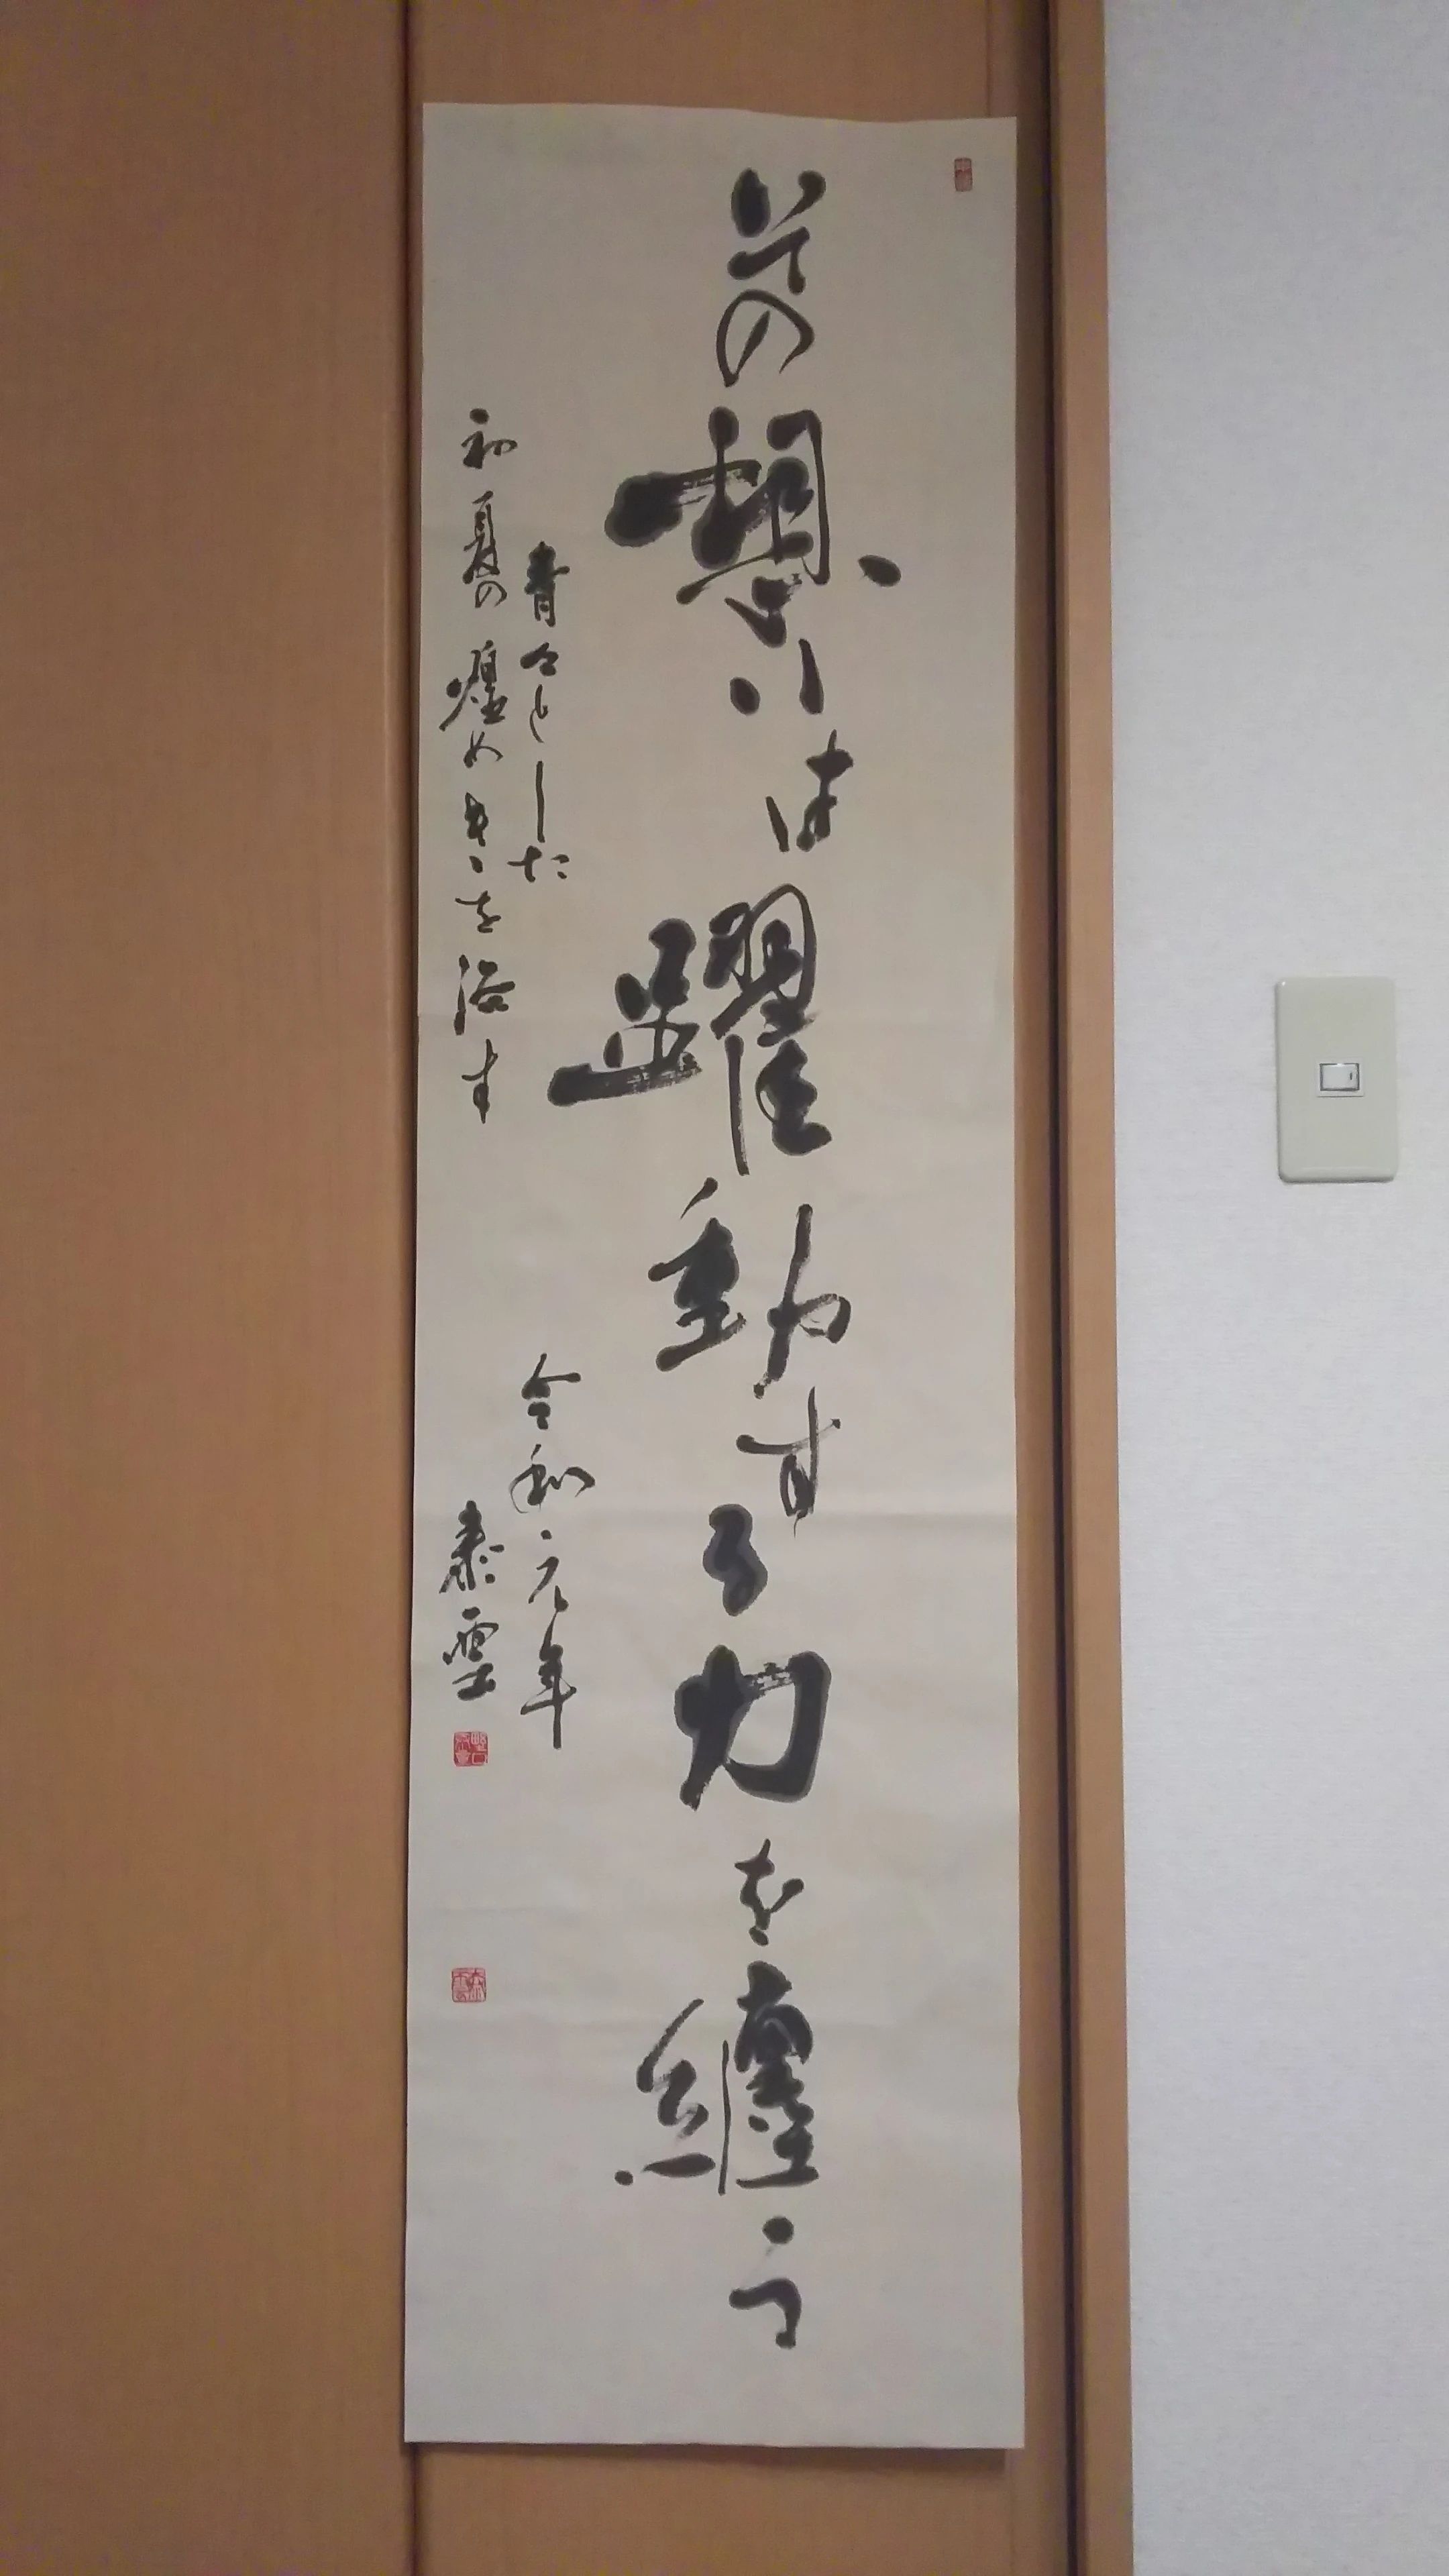 その想いは躍動する力を纏う
青々とした
初夏の煌めきを浴す
令和元年
泰雲